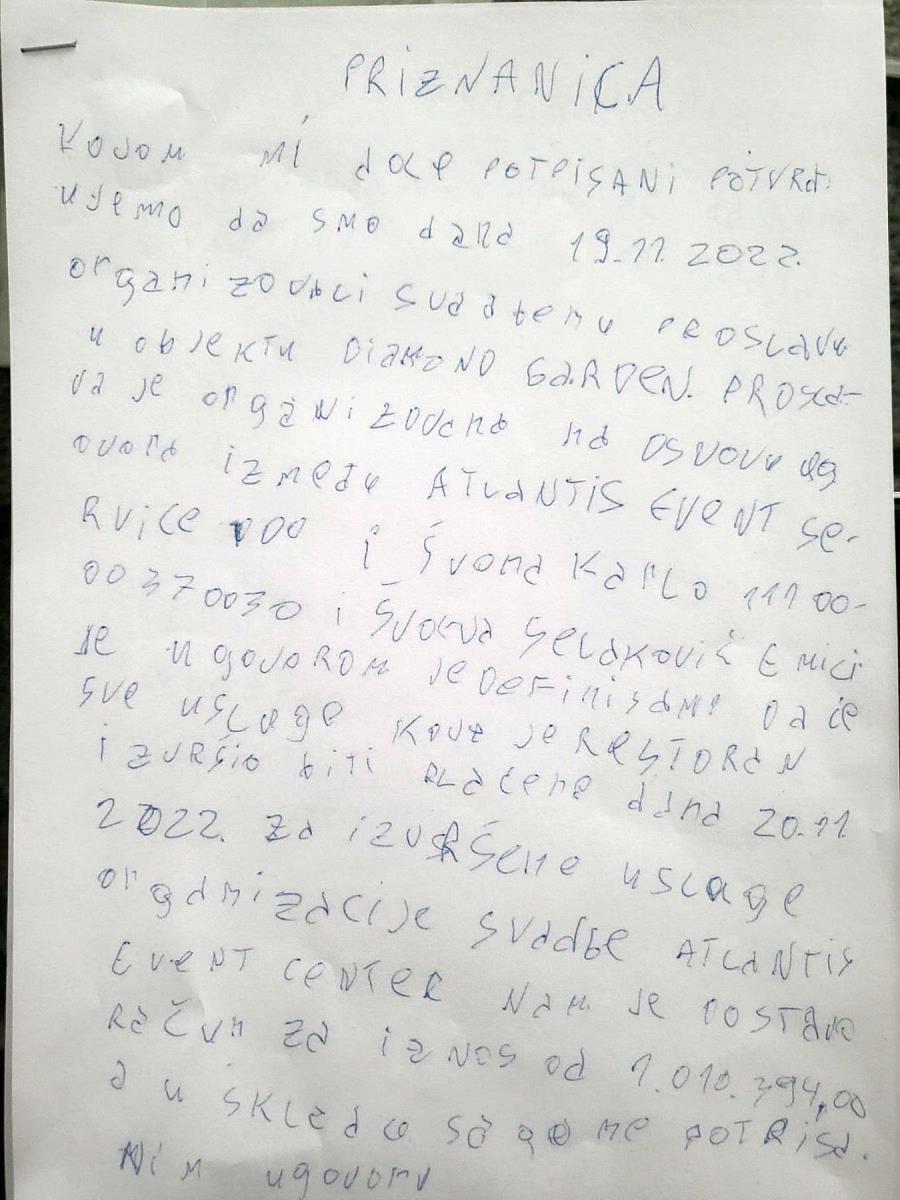 PRIZNANICA
KOJOM MI DOLE POTPISANI POTVRĐ-
UJEMO DA SMO DANA 19.11.2022.
ORGANIZOVALI SVADBENU PROSLAVU
U OBJEKTU DIAMOND GARDEN. PROSLA-
VA JE ORGANIZOVANA NA OSNOVU UG
OVORA IZMEĐU ATLANTIS EVENT SE-
RVICE DOO I ŠVONA KARLO 11100-
00370030 I SELAKOVIĆ EMICI
JE UGOVOROM JE DEFINISANO DA ĆE
SVE USLUGE KOJE JE RESTORAN
IZVRŠIO BITI PLAĆENE DANA 20.11
2022. ZA IZVRŠENE USLUGE
ORGANIZACIJE SVADBE ATLANTIS
EVENT CENTER NAM JE DOSTAVIO
RAČUN ZA IZNOS OD 1.010.394,00
A U SKLADU SA GORE POTPISA-
NIM UGOVORU